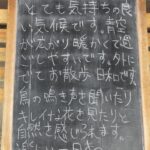 とても気持ちの良
い気候です。青空
が広がり暖かくて過
ごしやすいです。外に
でてお散歩日和です。
鳥の鳴き声を聞いたり
キレイな花を見たりと
自然を感じろます。
楽しい一日を